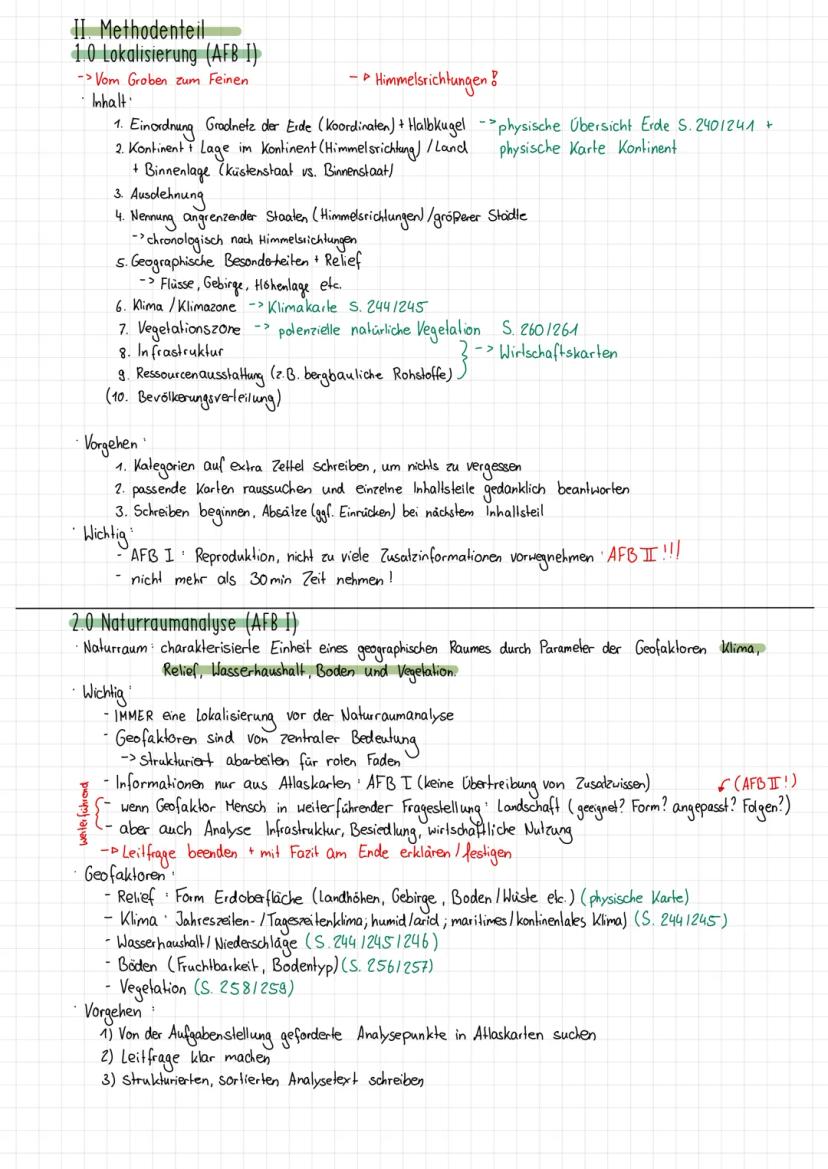 II. Methodenteil
1.0 Lokalisierung (AFB I)
-> Vom Groben zum Feinen -> Himmelsrichtungen!
· Inhalt:
1. Einordnung Gradnetz der Erde (Koordinaten) + Halbkugel -> physische Übersicht Erde S. 240/241 +
2. Kontinent + Lage im Kontinent (Himmelsrichtung) / Land physische Karte Kontinent
+ Binnenlage (Küstenstaat vs. Binnenstaat)
3. Ausdehnung
4. Nennung angrenzender Staaten (Himmelsrichtungen) / größerer Städte
-> chronologisch nach Himmelsrichtungen
5. Geographische Besonderheiten + Relief
-> Flüsse, Gebirge, Höhenlage etc.
6. Klima / Klimazone -> Klimakarte S. 244/245
7. Vegetationszone -> potenzielle natürliche Vegetation S. 260/261
8. Infrastruktur -> Wirtschaftskarten
9. Ressourcenausstattung (z.B. bergbauliche Rohstoffe)
(10. Bevölkerungsverteilung)
· Vorgehen:
1. Kategorien auf extra Zettel schreiben, um nichts zu vergessen
2. passende Karten raussuchen und einzelne Inhaltsteile gedanklich beantworten
3. Schreiben beginnen, Absätze (ggf. Einrücken) bei nächstem Inhaltsteil
· Wichtig:
- AFB I: Reproduktion, nicht zu viele Zusatzinformationen vorwegnehmen: AFB II!!!
- nicht mehr als 30 min Zeit nehmen!
2.0 Naturraumanalyse (AFB I)
· Naturraum: charakterisierte Einheit eines geographischen Raumes durch Parameter der Geofaktoren Klima,
Relief, Wasserhaushalt, Boden und Vegetation.
· Wichtig:
- IMMER eine Lokalisierung vor der Naturraumanalyse
- Geofaktoren sind von zentraler Bedeutung
-> Strukturiert abarbeiten für roten Faden
- Informationen nur aus Atlaskarten: AFB I (keine Übertreibung von Zusatzwissen) (AFB II!)
weiterführend
- wenn Geofaktor Mensch in weiterführender Fragestellung: Landschaft (geeignet? Form? angepasst? Folgen?)
- aber auch Analyse Infrastruktur, Besiedlung, wirtschaftliche Nutzung
-> Leitfrage beenden + mit Fazit am Ende erklären / festigen
· Geofaktoren:
- Relief: Form Erdoberfläche (Landhöhen, Gebirge, Boden/Wüste etc.) (physische Karte)
- Klima: Jahreszeiten-/Tageszeitenklima; humid/arid; maritimes/kontinentales Klima) (S. 244/245)
- Wasserhaushalt/Niederschläge (S. 244/245/246)
- Böden (Fruchtbarkeit, Bodentyp) (S. 256/257)
- Vegetation (S. 258/259)
· Vorgehen:
1) Von der Aufgabenstellung geforderte Analysepunkte in Atlaskarten suchen
2) Leitfrage klar machen
3) Strukturierten, sortierten Analysetext schreiben